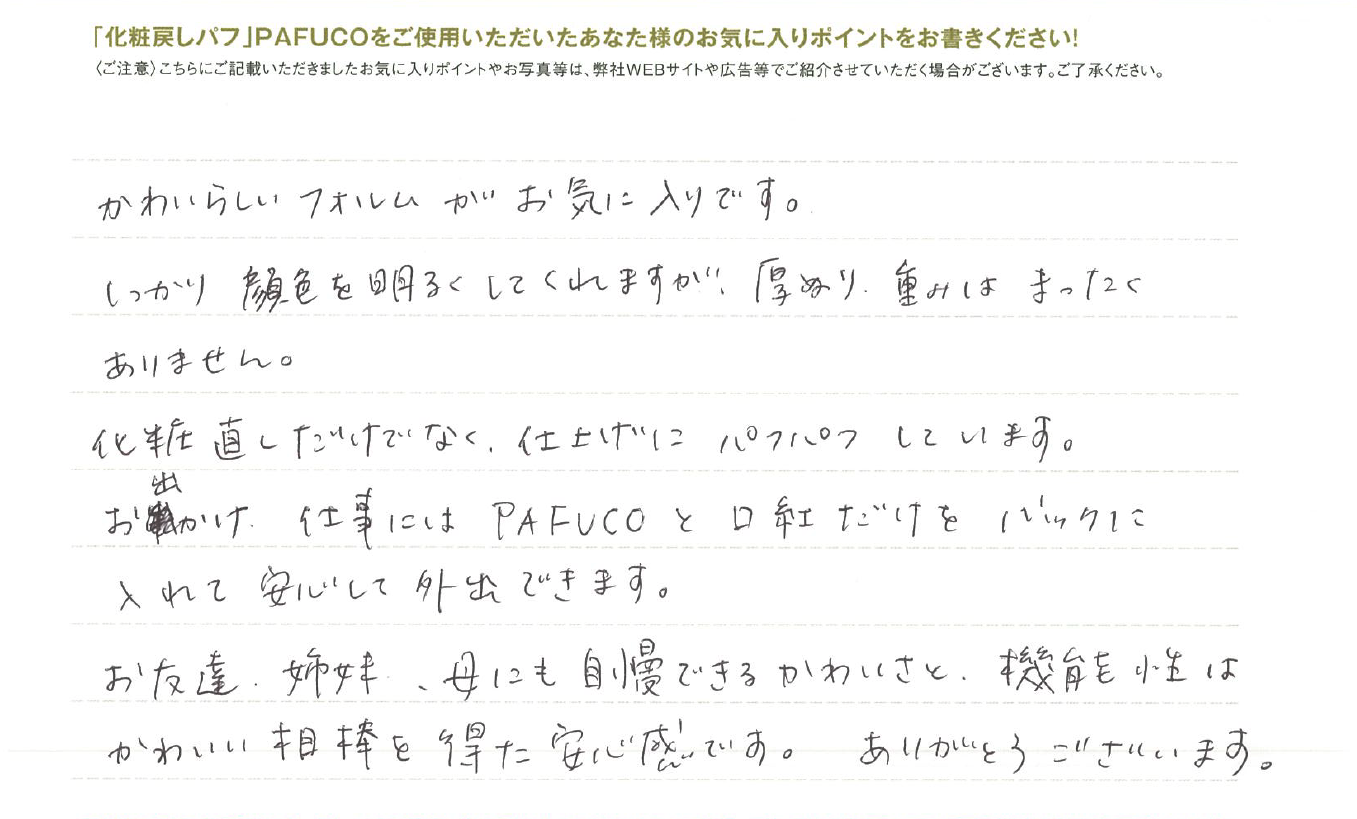 「化粧戻しパフ」PAFUCOをご使用いただいたあなた様のお気に入りポイントをお書きください!
〈ご注意〉こちらにご記載いただきましたお気に入りポイントやお写真等は、弊社WEBサイトや広告等でご紹介させていただく場合がございます。ご了承ください。
かわいらしい フォルム が お気に入りです。
しっかり 顔色を明るくしてくれますが、厚ぬり、重みは まったく
ありません。
化粧直しだけでなく、仕上げに パフパフ しています。
お出かけ、仕事には PAFUCO と 口紅だけを バックに
入れて 安心して 外出できます。
お友達、姉妹、母にも 自慢できるかわいさと、機能性は
かわいい相棒を得た安心感です。 ありがとうございます。